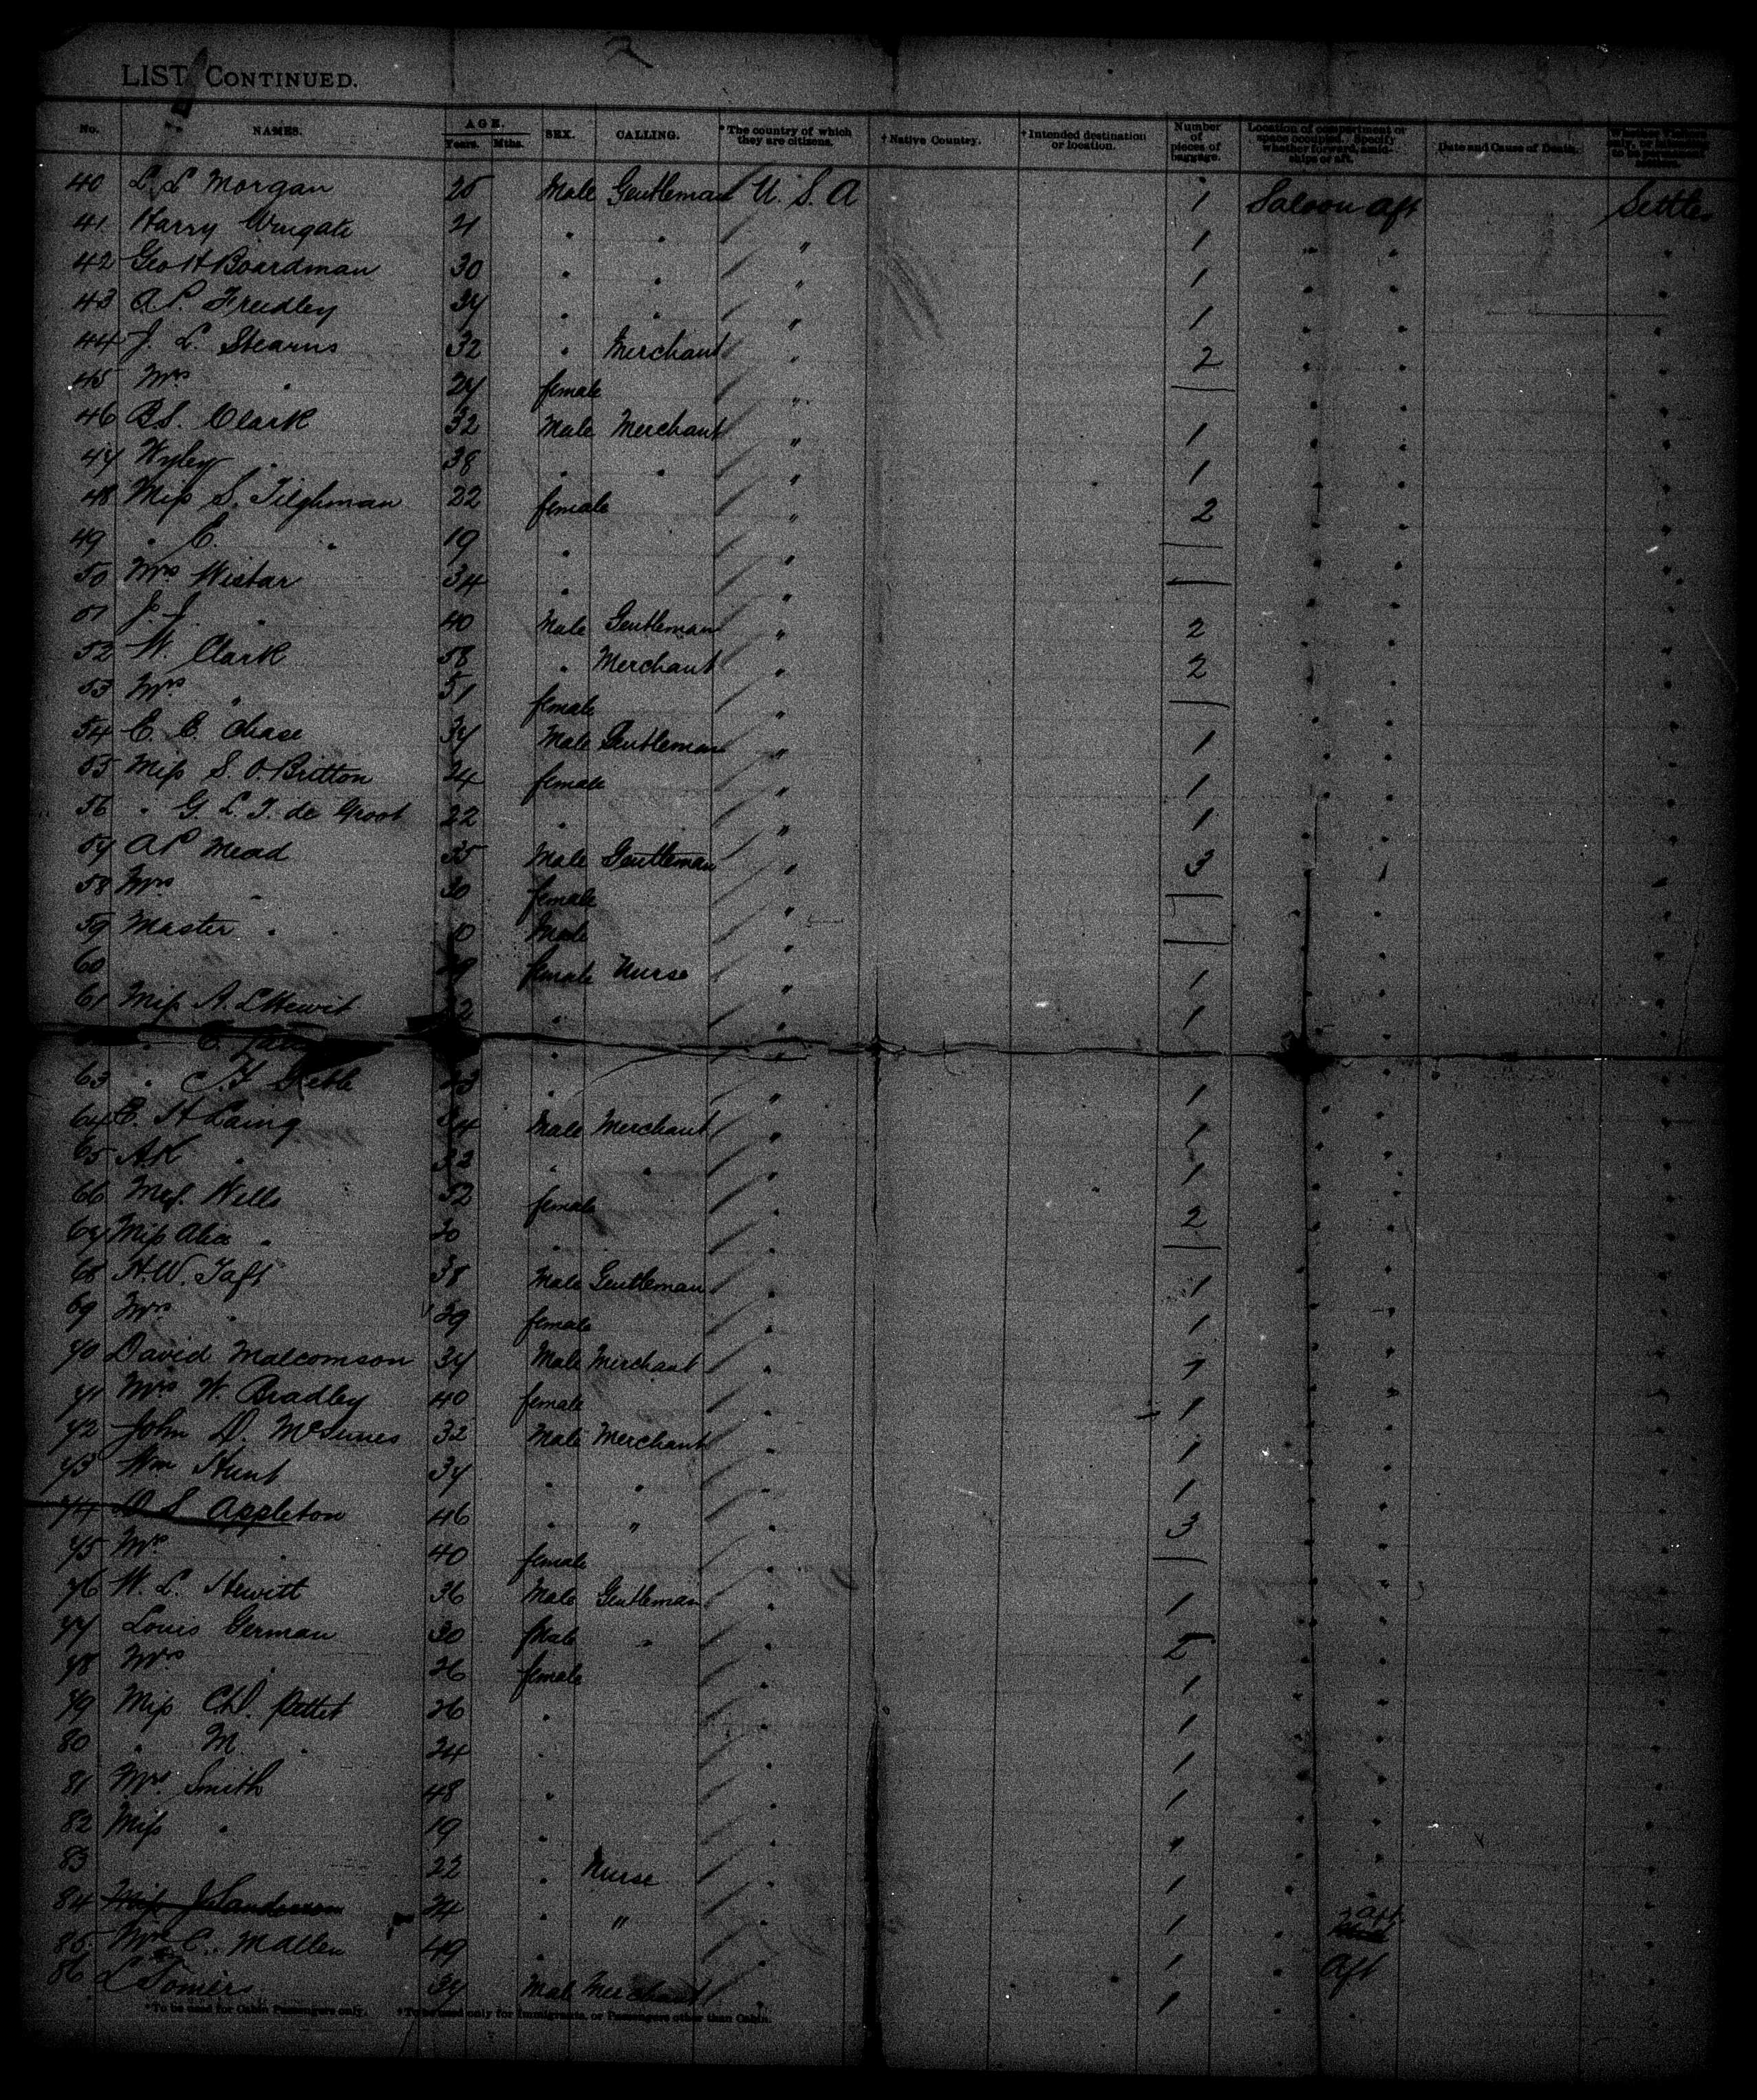 LIST CONTINUED.
No. NAMES. AGE. Years. Mths. SEX. CALLING. * The country of which they are citizens. † Native Country. † Intended destination or location. Number of pieces of baggage. Location of compartment or space occupied. Specify whether forward, amidships or aft. Date and Cause of Death.
40 L. L. Morgan 25 Male Gentleman U. S. A 1 Saloon aft
41 Harry Wingate 21 " " " 1
42 Geo H Boardman 30 " " " 1
43 A. P. Freudley 34 " " " 1
44 J. L. Stearns 32 " Merchant " 2
45 Mrs " 27 female "
46 B S. Clark 32 Male Merchant " 1
47 Wyley " 38 " " " 1
48 Miss S. Tilghman 22 female " 2
49 " E. " 19 " "
50 Mrs Wistar 34 " "
51 J. J. " 40 Male Gentleman " 2
52 W. Clark 58 " Merchant " 2
53 Mrs " 51 female "
54 C. C. Chase 37 Male Gentleman " 1
55 Miss S. O. Britton 24 female " 1
56 " G. L. T. de Groot 22 " " 1
57 A P Mead 35 Male Gentleman " 3
58 Mrs " 30 female "
59 Master " Male "
60 female Nurse " 1
61 Miss A. L Hewit " " 1
" E.
63 " " " 1
64 C. H Laing Male Merchant " 1
65 A. K " " " " 1
66 Wells 52 female " 2
67 Miss Alice " 20 " "
68 H. W. Taft 38 Male Gentleman " 1
69 Mrs " 39 female " 1
70 David Malcomson 37 Male Merchant " 1
71 Mrs W. Bradley 40 female " 1
72 John D. 32 Male Merchant " 1
73 Wm Hunt 37 " " " 1
74 D S Appleton 46 " " " 3
75 Mrs " 40 female "
76 W. L. Hewitt 36 Male Gentleman " 1
77 Louis German 30 Male " " 2
78 Mrs " 26 female " 1
79 Miss C. D. Pettit 26 " " 1
80 " M. " 24 " " 1
81 Mrs Smith 48 " " 1
82 Miss " 19 " " 1
83 22 " Nurse " 1
84 Miss J Sanderson 24 " " " 1 aft
85 Mrs C. Mallen 49 " " 1 " Aft
86 L Somers 34 Male Merchant " 1
* To be used for Cabin Passengers only. † To be used only for Immigrants, or Passengers other than Cabin.